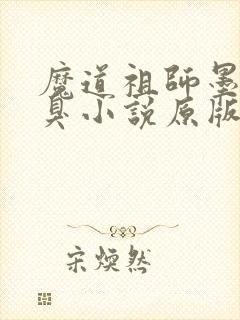 魔道祖師墨
臭小說原版
宋煥然